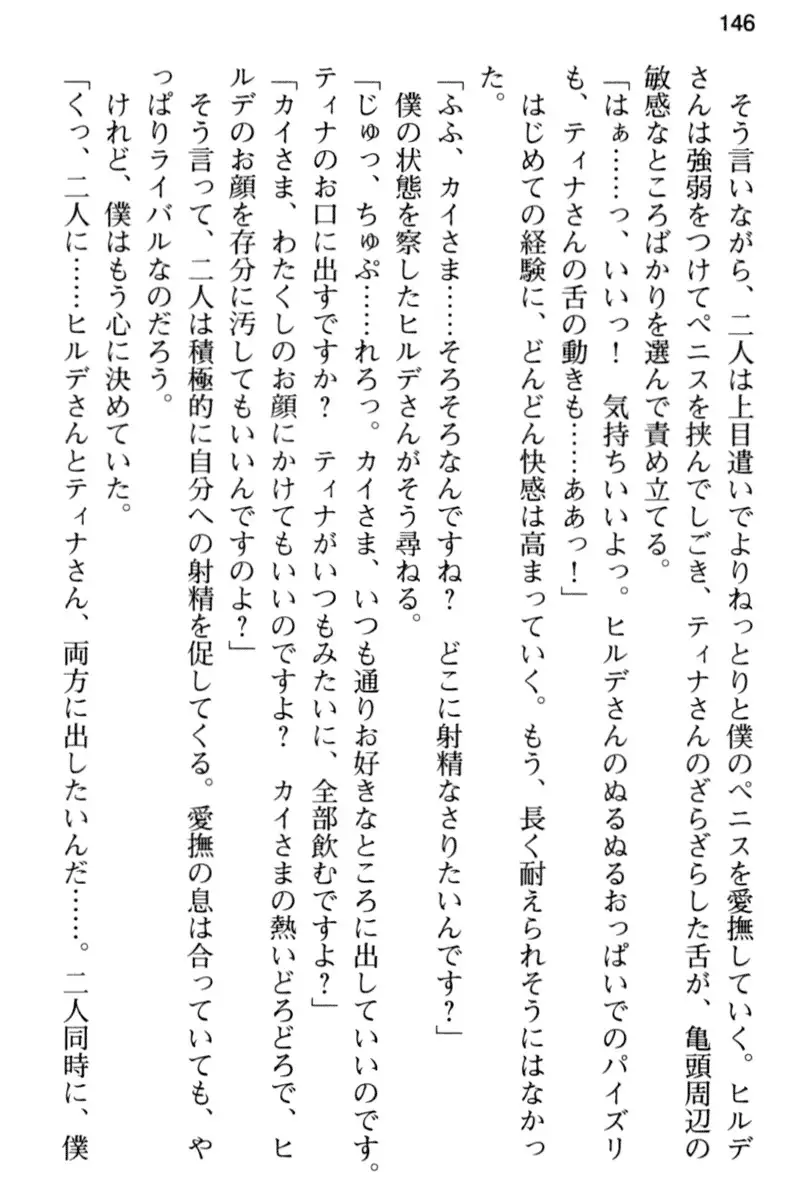 146
　そう言いながら、二人は上目遣いでよりねっとりと僕のペニスを愛撫していく。ヒルデ
さんは強弱をつけてペニスを挟んでしごき、ティナさんのざらざらした舌が、亀頭周辺の
敏感なところばかりを選んで責め立てる。
「はぁ……っ、いいっ！　気持ちいいよっ。ヒルデさんのぬるぬるおっぱいでのパイズリ
も、ティナさんの舌の動きも……ああっ！」
　はじめての経験に、どんどん快感は高まっていく。もう、長く耐えられそうにはなかっ
た。
「ふふ、カイさま……そろそろなんですね？　どこに射精なさりたいんです？」
　僕の状態を察したヒルデさんがそう尋ねる。
「じゅっ、ちゅぷ……れろっ。カイさま、いつも通りお好きなところに出していいのです。
ティナのお口に出すですか？　ティナがいつもみたいに、全部飲むですよ？」
「カイさま、わたくしのお顔にかけてもいいのですよ？　カイさまの熱いどろどろで、ヒ
ルデのお顔を存分に汚してもいいんですのよ？」
　そう言って、二人は積極的に自分への射精を促してくる。愛撫の息は合っていても、や
っぱりライバルなのだろう。
　けれど、僕はもう心に決めていた。
「くっ、二人に……ヒルデさんとティナさん、両方に出したいんだ……。二人同時に、僕